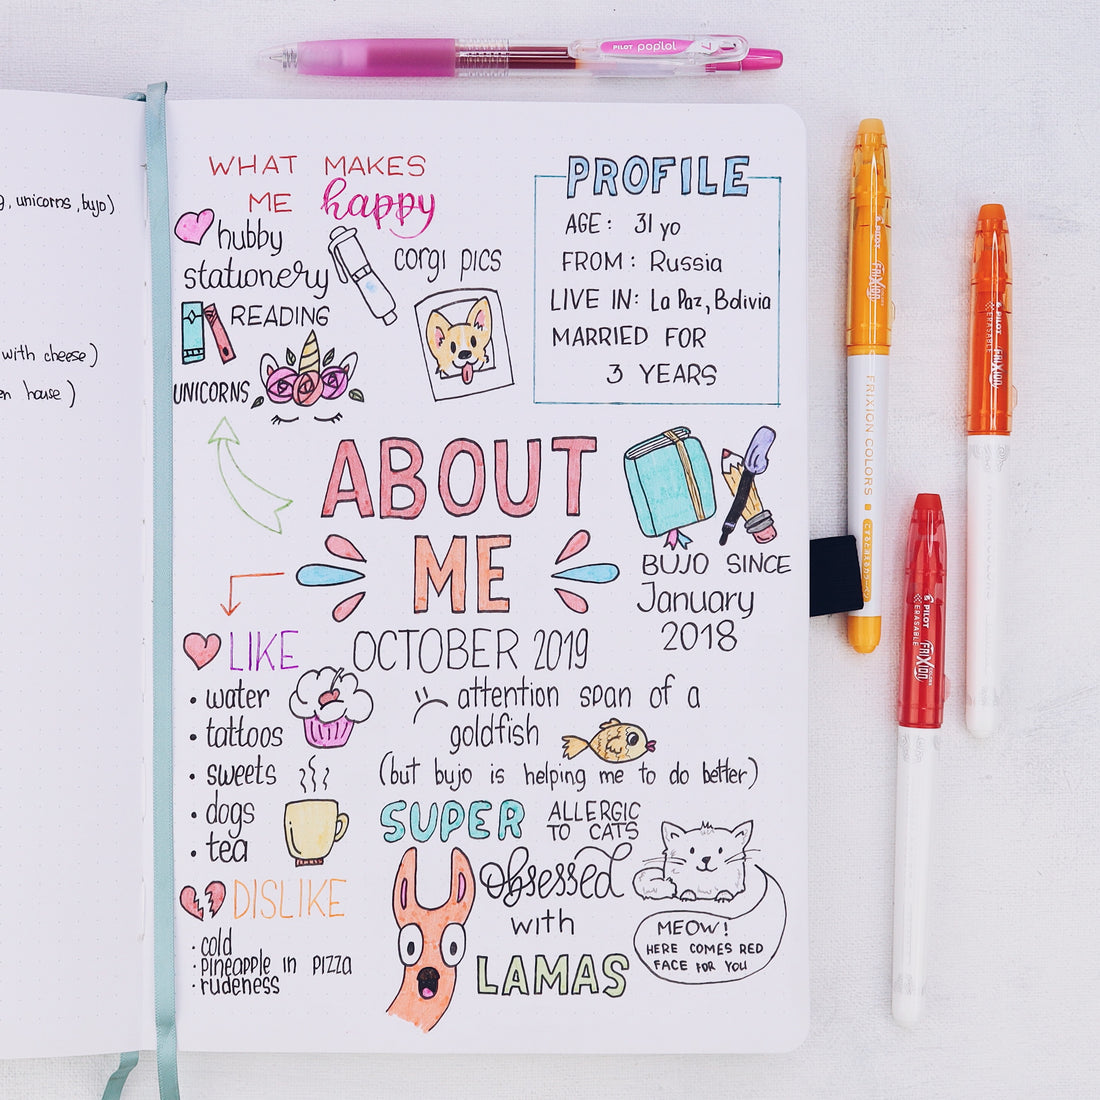 , unicorns, bujo)
with cheese)
house)
WHAT MAKES
ME happy
hubby
stationery
corgi pics
READING
UNICORNS
PROFILE
AGE: 31 yo
FROM: Russia
LIVE IN: La Paz, Bolivia
MARRIED FOR
3 YEARS
ABOUT
ME
OCTOBER 2019
BUJO SINCE
January
2018
LIKE
• water
• tattoos
• sweets
• dogs
• tea
DISLIKE
· cold
· pineapple in pizza
· rudeness
attention span of a
goldfish
(but bujo is helping me to do better)
SUPER
ALLERGIC
TO CATS
obsessed
with
LAMAS
MEOW!
HERE COMES RED
FACE FOR YOU
PILOT poplol 7
PILOT FRIXION
FRIXION COLORS
PILOT
ERASABLE
FRIXION
PILOT
ERASABLE
FRIXION
COLORS